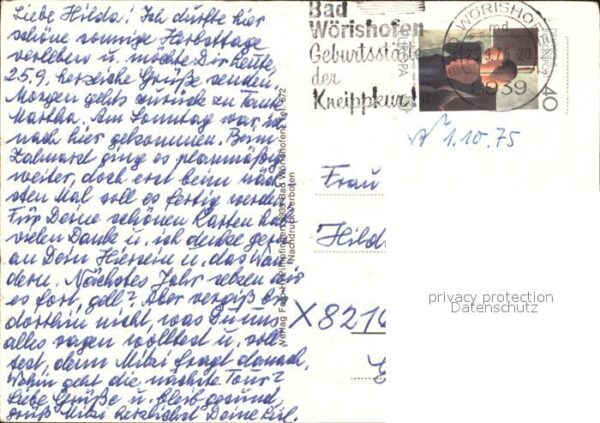 Liebe Hilda! Ich durfte hier
schöne sonnige Herbsttage
verleben u. möchte Dir heute,
25.9. herzliche Grüße senden,
Morgen gehts zurück zu Tante
Martha. Am Sonntag war ich
nach hier gekommen. Beim
Zahnarzt ging es planmäßig
weiter, doch erst beim näch-
sten Mal soll es fertig werden.
Für Deine schönen Karten hab
vielen Dank u. ich denke gern
an Dein Hiersein u. das Wan-
dern. Nächstes Jahr setzen wir
es fort, gell? Aber vergiß bis
dorthin nicht, was Du uns
alles sagen wolltest u. soll-
test, denn Mitzi fragt danach.
Wohin geht die nächste Tour?
Liebe Grüße u. bleib gesund,
grüß Mitzi herzlichst Deine Lisl.
Nachdruck verboten
Bad
Wörishofen
Geburtsstätte
der
Kneippkur!
BAD WÖRISHOFEN
md
8939
40
1.10.75
Frau
Hild
X 821
privacy protection
Datenschutz